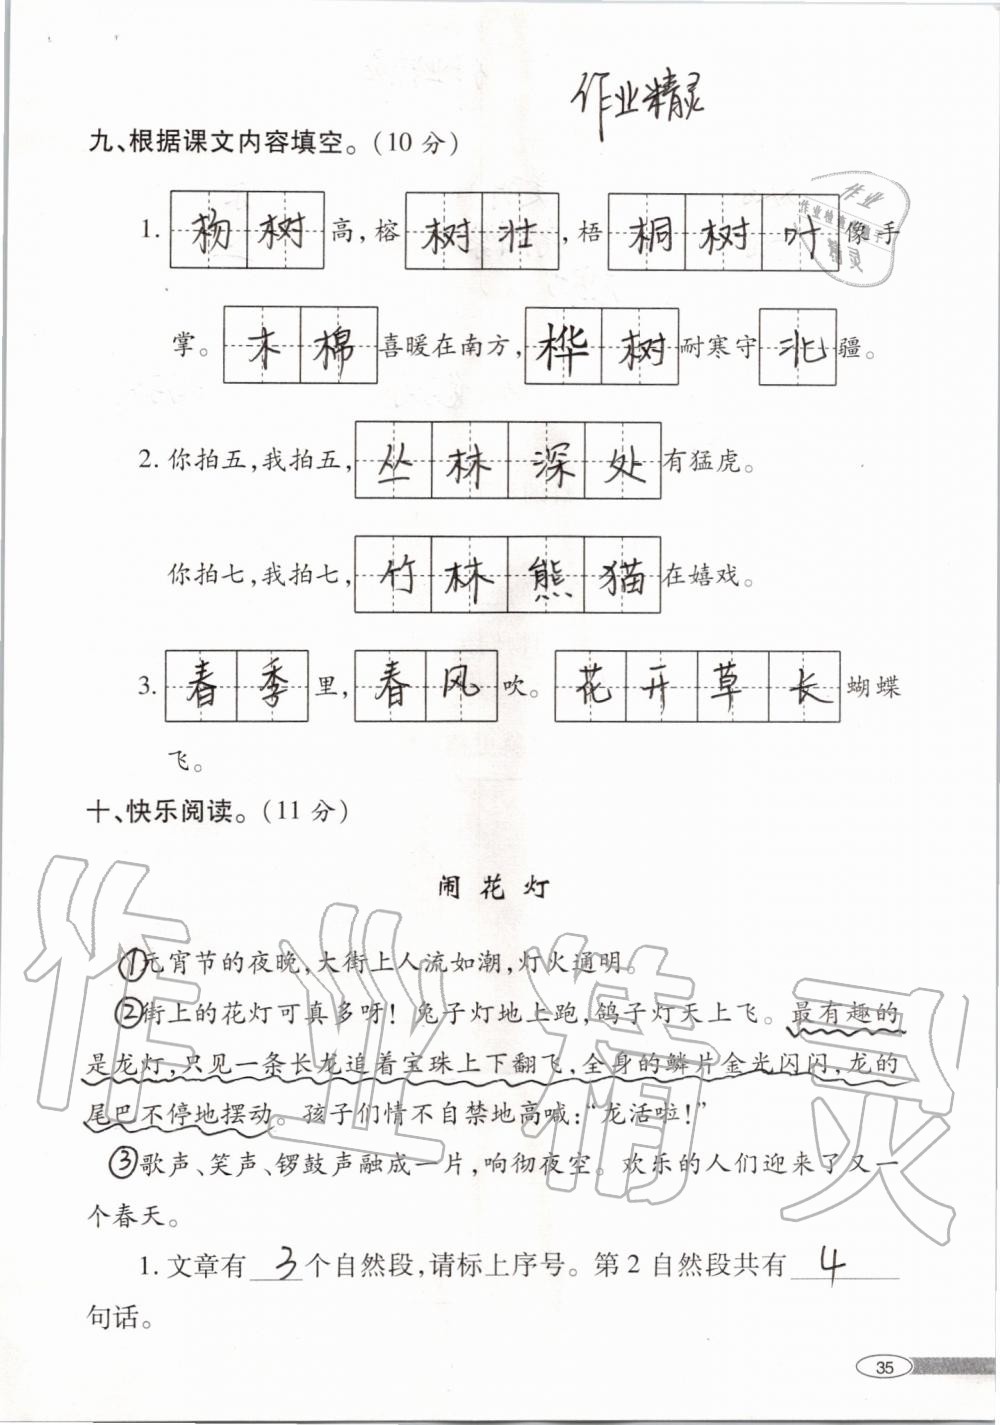 作业精灵
九、根据课文内容填空。(10 分)
作业
作业检查小助手
精灵
1. 杨树高,榕树壮,梧桐树叶像手
掌。木棉喜暖在南方,桦树耐寒守北疆。
2. 你拍五,我拍五,丛林深处有猛虎。
你拍七,我拍七,竹林熊猫在嬉戏。
3. 春季里,春风吹。花开草长蝴蝶
飞。
十、快乐阅读。(11 分)
闹花灯
①元宵节的夜晚,大街上人流如潮,灯火通明。
②街上的花灯可真多呀!兔子灯地上跑,鸽子灯天上飞。最有趣的
是龙灯,只见一条长龙追着宝珠上下翻飞,全身的鳞片金光闪闪,龙的
尾巴不停地摆动。孩子们情不自禁地高喊:“龙活啦!”
③歌声、笑声、锣鼓声融成一片,响彻夜空。欢乐的人们迎来了又一
个春天。
1. 文章有 3 个自然段,请标上序号。第 2 自然段共有 4
句话。
35
作业精灵